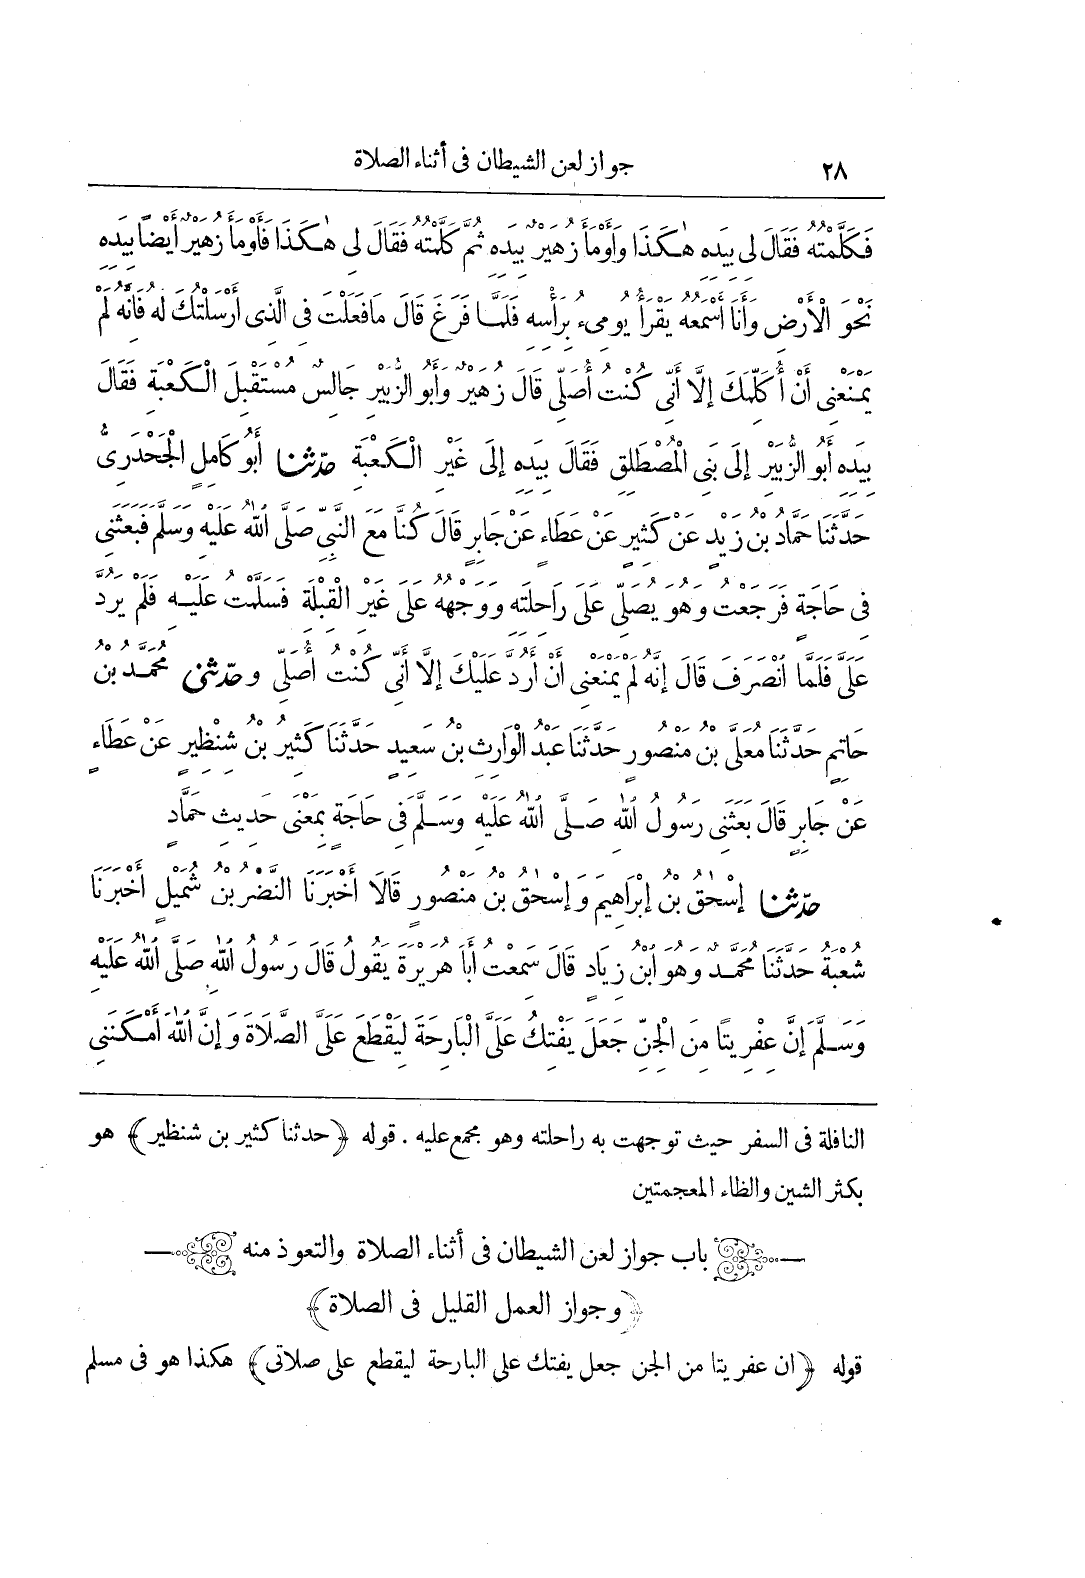 ٢٨ جواز لعن الشيطان فى أثناء الصلاة
فَكَلَّمْتُهُ فَقَالَ لِى بِيَدِهِ هٰكَذَا وَأَوْمَأَ زُهَيْرٌ بِيَدِهِ ثُمَّ كَلَّمْتُهُ فَقَالَ لِى هٰكَذَا فَأَوْمَأَ زُهَيْرٌ أَيْضًا بِيَدِهِ
نَحْوَ الْأَرْضِ وَأَنَا أَسْمَعُهُ يَقْرَأُ يُومِىءُ بِرَأْسِهِ فَلَمَّا فَرَغَ قَالَ مَافَعَلْتَ فِى الَّذِى أَرْسَلْتُكَ لَهُ فَانَّهُ لَمْ
يَمْنَعْنِى أَنْ أُكَلِّمَكَ إِلَّا أَنِّى كُنْتُ أُصَلِّى قَالَ زُهَيْرٌ وَأَبُو الزُّبَيْرِ جَالِسٌ مُسْتَقْبِلَ الْكَعْبَةِ فَقَالَ
بِيَدِهِ أَبُو الزُّبَيْرِ إِلَى بَنِى الْمُصْطَلِقِ فَقَالَ بِيَدِهِ إِلَى غَيْرِ الْكَعْبَةِ حدّثنا أَبُو كَامِلٍ الْجَحْدَرِىُّ
حَدَّثَنَا حَمَّادُ بْنُ زَيْدٍ عَنْ كَثِيرٍ عَنْ عَطَاءٍ عَنْ جَابِرٍ قَالَ كُنَّا مَعَ النَّبِىِّ صَلَّى اللّٰهُ عَلَيْهِ وَسَلَّمَ فَبَعَثَنِى
فِى حَاجَةٍ فَرَجَعْتُ وَهُوَ يُصَلِّى عَلَى رَاحِلَتِهِ وَوَجْهُهُ عَلَى غَيْرِ الْقِبْلَةِ فَسَلَّمْتُ عَلَيْهِ فَلَمْ يَرُدَّ
عَلَىَّ فَلَمَّا انْصَرَفَ قَالَ إِنَّهُ لَمْ يَمْنَعْنِى أَنْ أَرُدَّ عَلَيْكَ إِلَّا أَنِّى كُنْتُ أُصَلِّى وحدّثنى مُحَمَّدُ بْنُ
حَاتِمٍ حَدَّثَنَا مُعَلَّى بْنُ مَنْصُورٍ حَدَّثَنَا عَبْدُ الْوَارِثِ بْنُ سَعِيدٍ حَدَّثَنَا كَثِيرُ بْنُ شِنْظِيرٍ عَنْ عَطَاءٍ
عَنْ جَابِرٍ قَالَ بَعَثَنِى رَسُولُ اللّٰهِ صَلَّى اللّٰهُ عَلَيْهِ وَسَلَّمَ فِى حَاجَةٍ بِمَعْنَى حَدِيثِ حَمَّادٍ
حدّثنا إِسْحٰقُ بْنُ إِبْرَاهِيمَ وَإِسْحٰقُ بْنُ مَنْصُورٍ قَالَا أَخْبَرَنَا النَّضْرُ بْنُ شُمَيْلٍ أَخْبَرَنَا
شُعْبَةُ حَدَّثَنَا مُحَمَّدٌ وَهُوَ ابْنُ زِيَادٍ قَالَ سَمِعْتُ أَبَا هُرَيْرَةَ يَقُولُ قَالَ رَسُولُ اللّٰهِ صَلَّى اللّٰهُ عَلَيْهِ
وَسَلَّمَ إِنَّ عِفْرِيتًا مِنَ الْجِنِّ جَعَلَ يَفْتِكُ عَلَىَّ الْبَارِحَةَ لِيَقْطَعَ عَلَىَّ الصَّلَاةَ وَإِنَّ اللّٰهَ أَمْكَنَنِى
النافلة فى السفر حيث توجهت به راحلته وهو مجمع عليه . قوله ﴿حدثنا كثير بن شنظير﴾ هو
بكثر الشين والظاء المعجمتين
باب جواز لعن الشيطان فى أثناء الصلاة والتعوذ منه
﴿وجواز العمل القليل فى الصلاة﴾
قوله ﴿ان عفريتا من الجن جعل يفتك على البارحة ليقطع على صلاتى﴾ هكذا هو فى مسلم